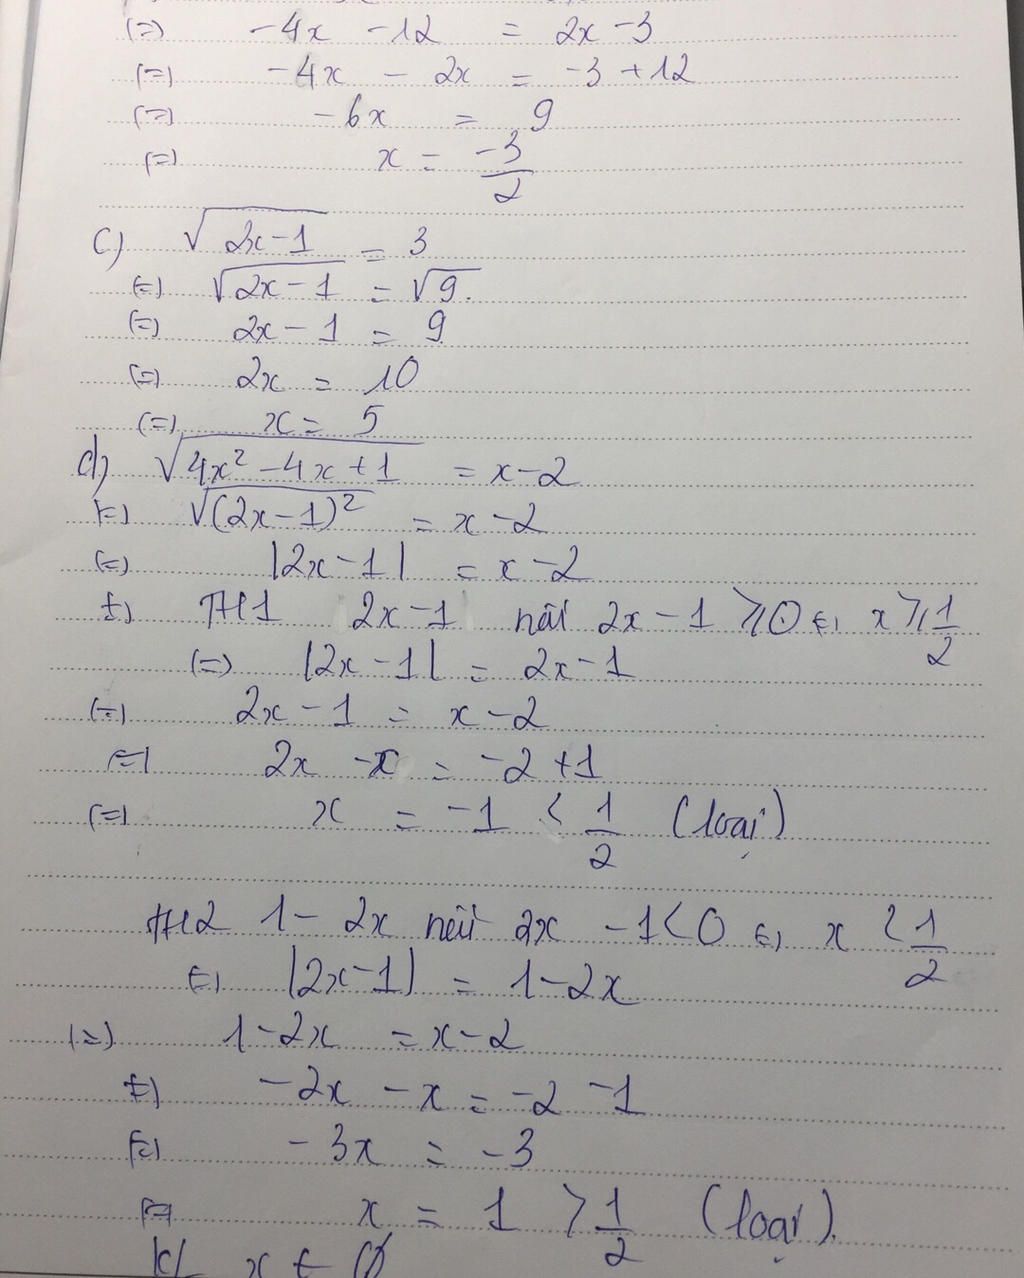 (=) -4x -12 = 2x -3
(=) -4x - 2x = -3 +12
(=) -6x = 9
(=) x = -3/2
c) √(2x-1) = 3
(=) √(2x-1) = √9.
(=) 2x - 1 = 9
(=) 2x = 10
(=) x = 5
d) √(4x² -4x +1) = x-2
(=) √((2x-1)²) = x-2
(=) |2x-1| = x-2
(=) TH1 2x-1 nếu 2x-1 ⩾0 (=) x ⩾ 1/2
(=) |2x-1| = 2x-1
(=) 2x-1 = x-2
(=) 2x -x = -2+1
(=) x = -1 < 1/2 (loại)
TH2 1- 2x nếu 2x -1<0 (=) x < 1/2
(=) |2x-1| = 1-2x
(=) 1-2x = x-2
(=) -2x -x = -2 -1
(=) -3x = -3
(=) x = 1 > 1/2 (loại).
Kl x ∈ Ø